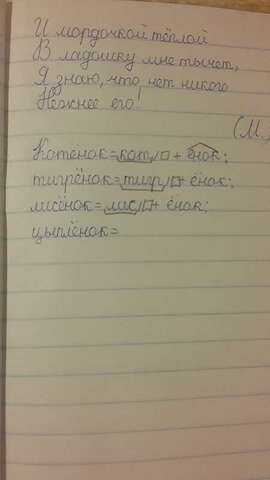 И мордочкой тёплой
В ладошку мне тычет,
Я знаю, что нет никого
Нежнее его!
(М.
Котёнок=кот/□+ёнок;
тигрёнок=тигр/□+ёнок;
лисёнок=лис/□+ёнок;
цыплёнок=